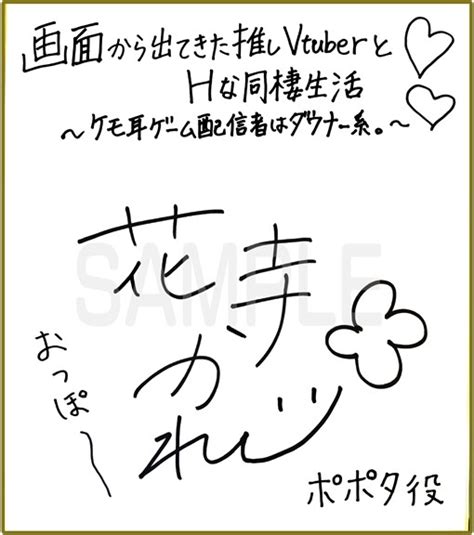 画面から出てきた推しVtuberと
Hな同棲生活
～ケモ耳ゲーム配信者はダウナー系。～
SAMPLE
花寺
かれし
おっぽ～
ポポタ役